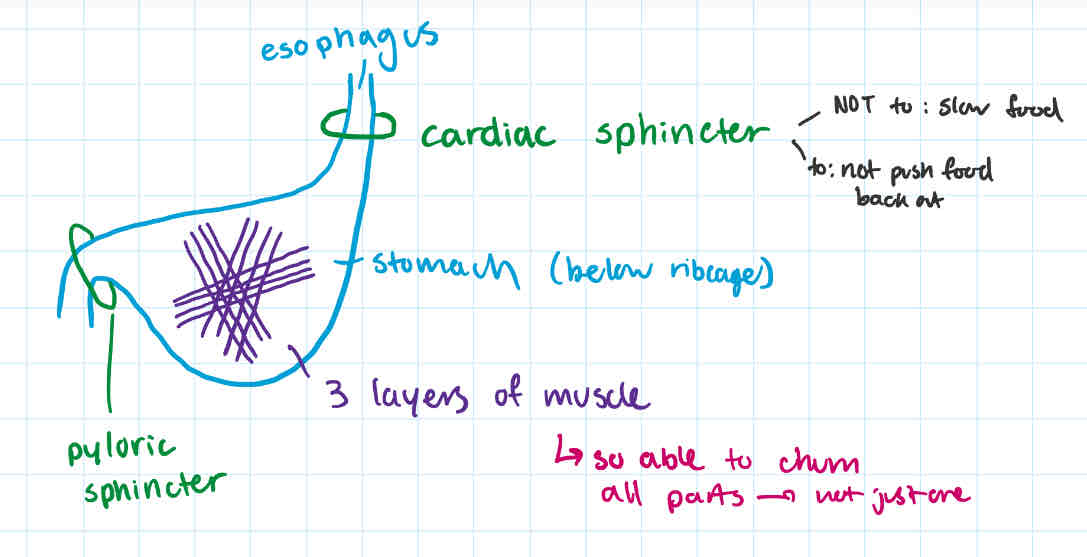 esophagus
cardiac sphincter
NOT to: slow food
to: not push food
back out
stomach (below ribcage)
3 layers of muscle
↳ so able to churn
all parts → not just one
pyloric
sphincter